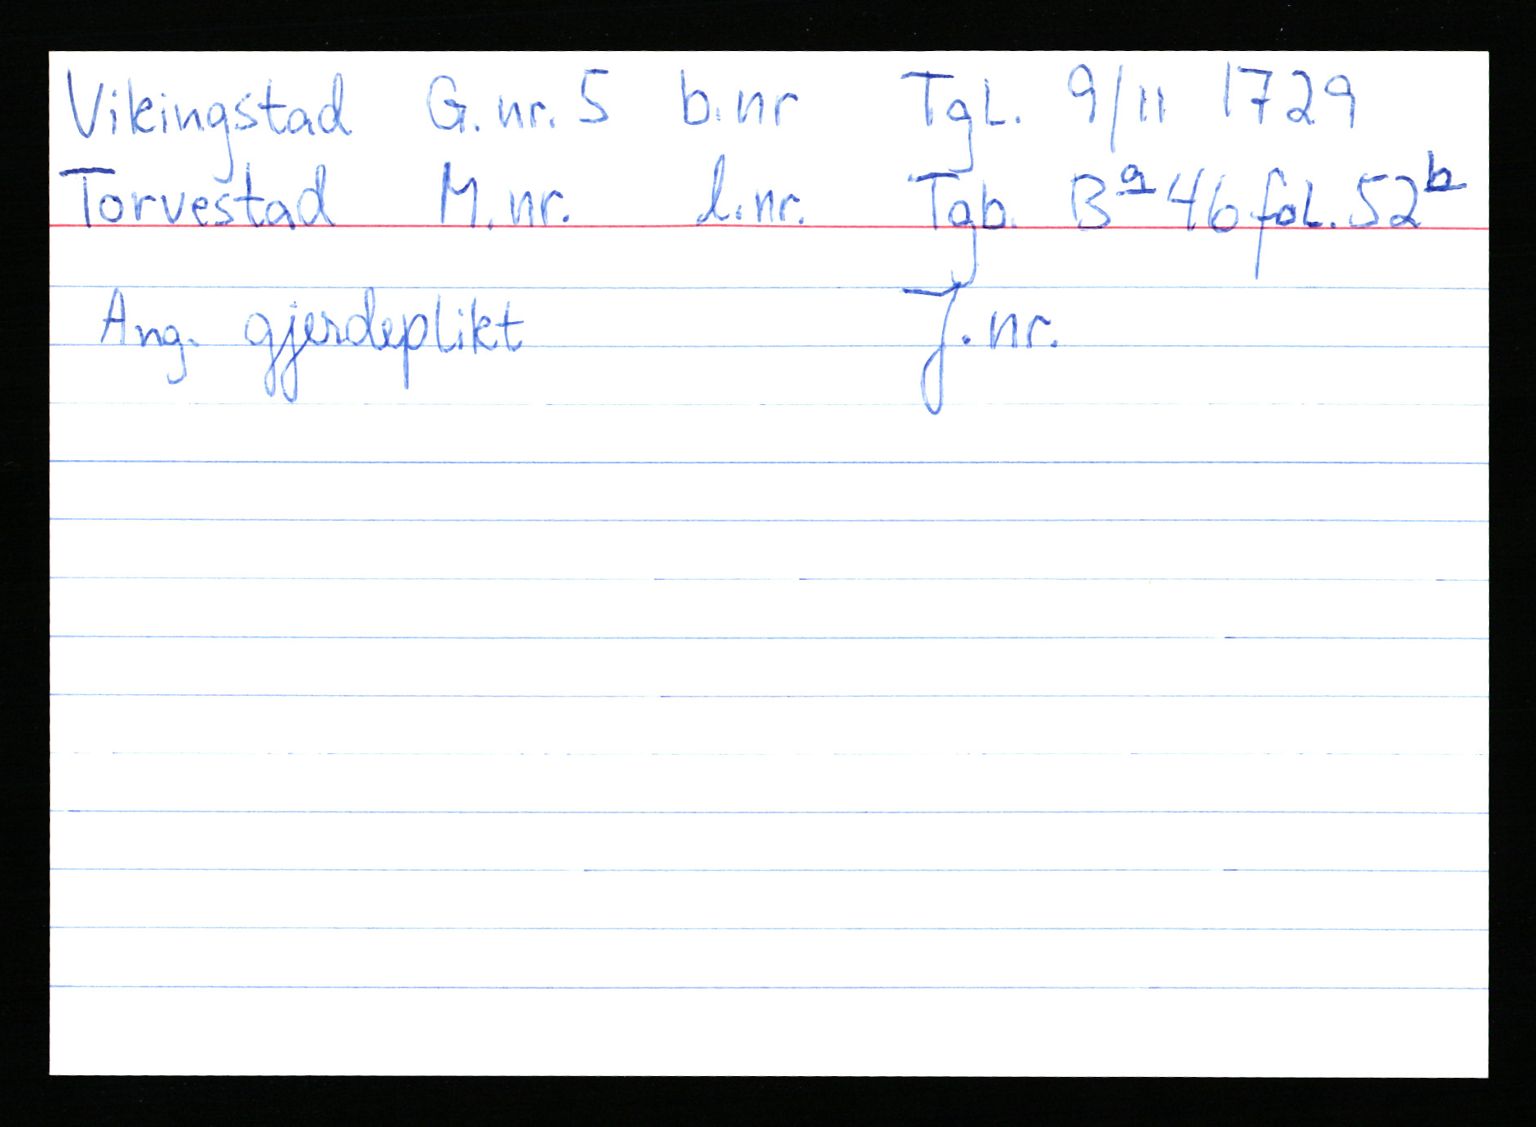 Vikingstad G.nr. 5 b.nr Tgl. 9/11 1729
Torvestad M.nr. l.nr. Tgb. Bª 46 fol. 52ᵇ
Ang. gjerdeplikt J.nr.